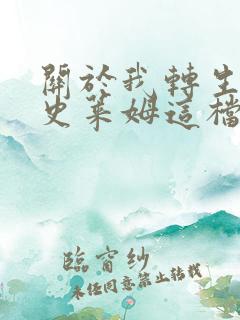 關於我轉生
史萊姆這檔
臨窗紗
未經同意禁止轉載